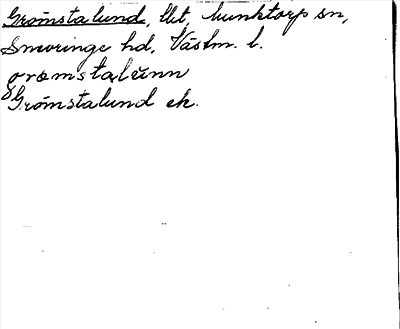 Grömstalund, lht, Munktorps sn,
Snevringe hd, Västm. l.
grömstalünn
Grömstalund ek.